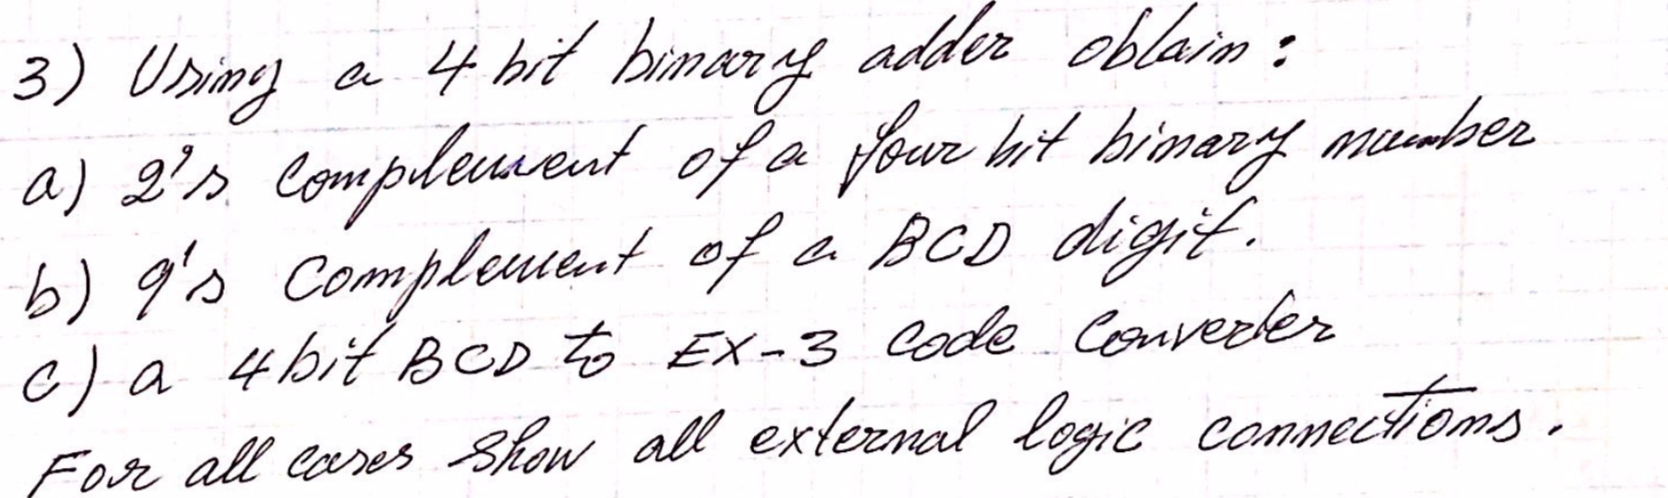 3) Using a 4 bit binary adder obtain:
a) 2's complement of a four bit binary number
b) 9's complement of a BCD digit.
c) a 4 bit BCD to EX-3 code converter
For all cases show all external logic connections.